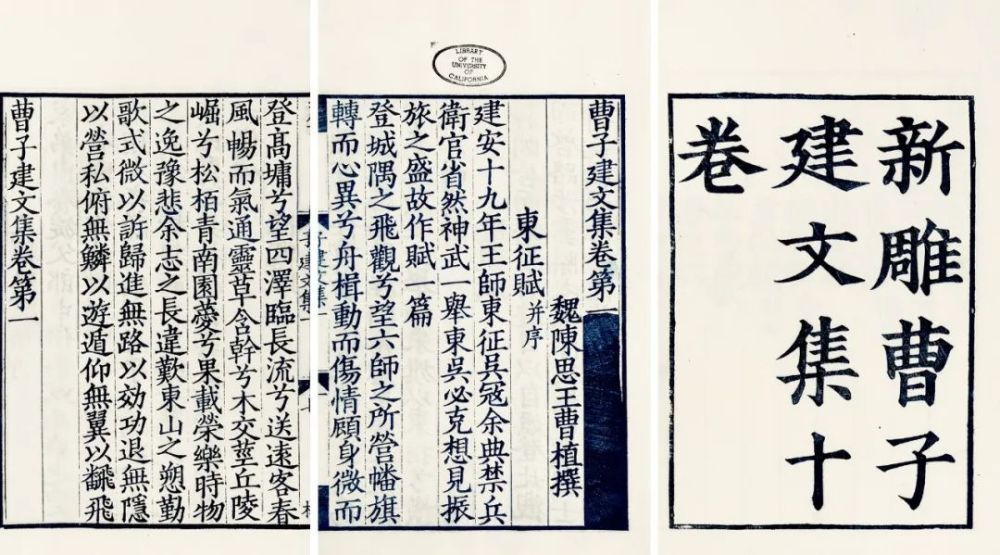 新雕曹子
建文集十
卷
LIBRARY
OF THE
UNIVERSITY
OF
CALIFORNIA
曹子建文集卷第一
魏陳思王曹植撰
東征賦 并序
建安十九年王師東征吳寇余典禁兵
衛官省然神武一舉東吳必克想見振
旅之盛故作賦一篇
登城隅之飛觀兮望六師之所營幡旗
轉而心異兮舟楫動而傷情顧身微而
登髙墉兮望四澤臨長流兮送遠客春
風暢而氣通靈草含幹兮木交莖丘陵
崛兮松栢青南園薆兮果載榮樂時物
之逸豫悲余志之長違歎東山之愬勤
歌式微以訢歸進無路以効功退無隱
以營私俯無鱗以遊遁仰無翼以飜飛
曹子建文集卷第一